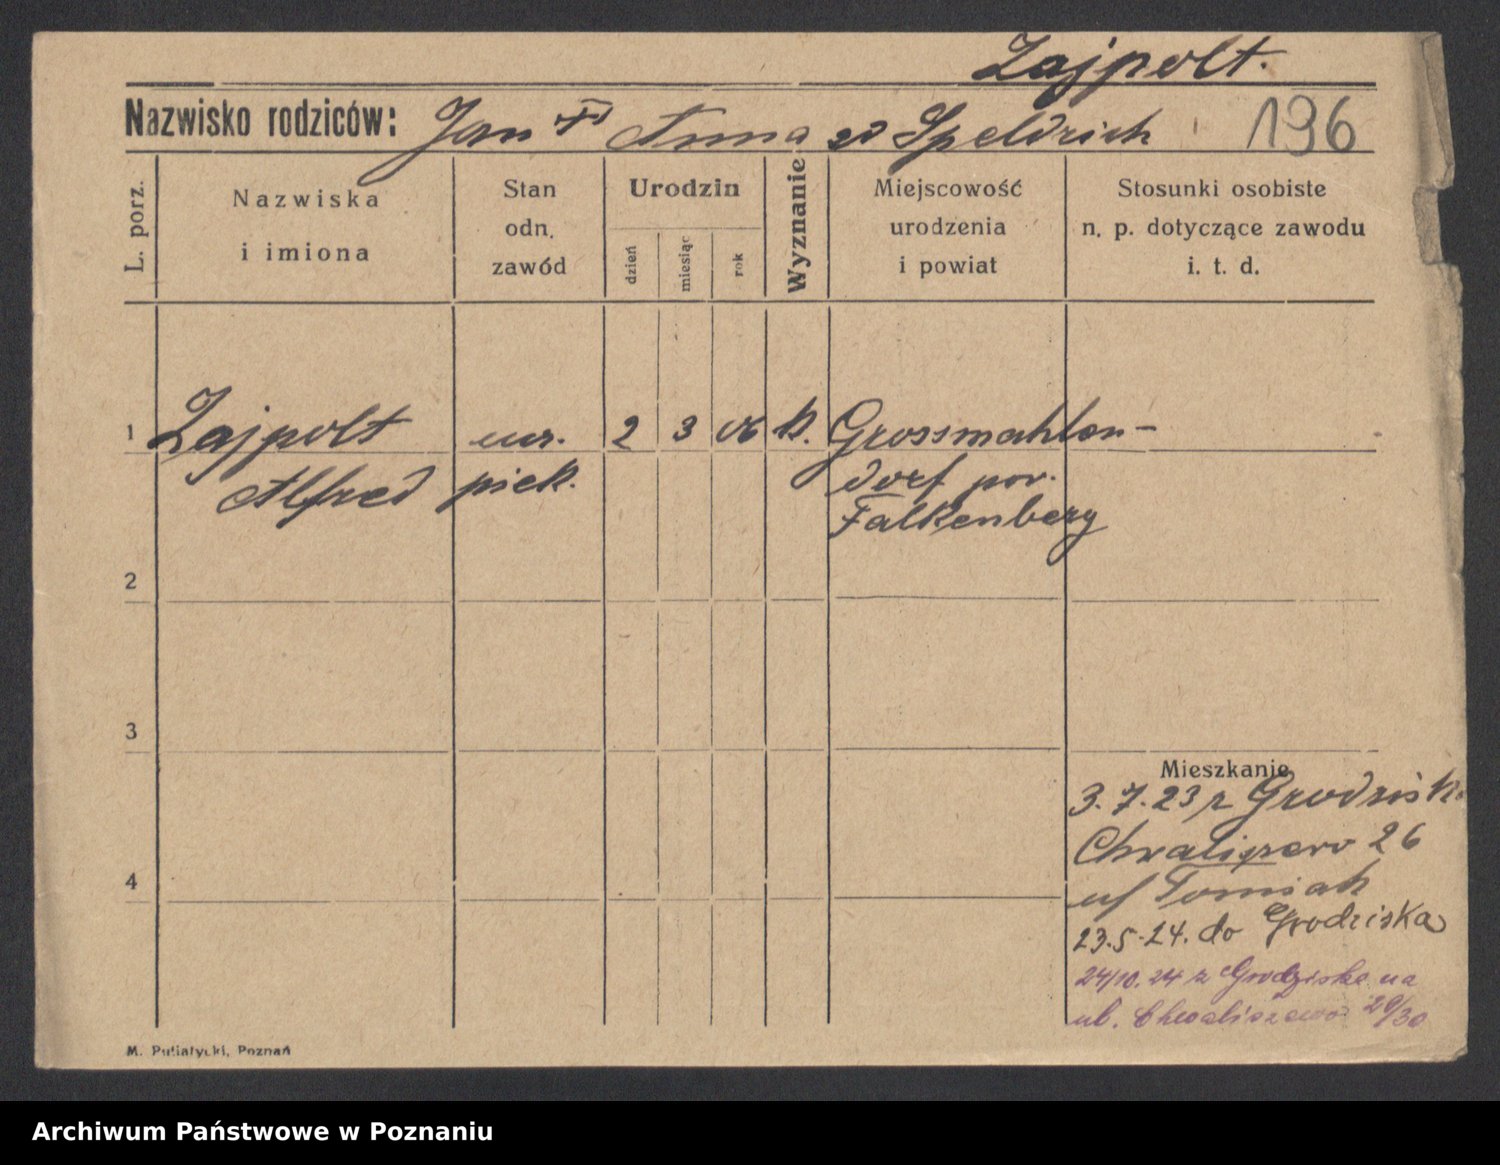 Zajpolt.
Nazwisko rodziców: Jan Anna zd Speldrich 196
L. porz.
Nazwiska i imiona
Stan odn. zawód
Urodzin
dzień
miesiąc
rok
Wyznanie
Miejscowość urodzenia i powiat
Stosunki osobiste n. p. dotyczące zawodu i. t. d.
1 Zajpolt ucz. 2 3 06 k. Grossmahlen-
Alfred piek. dorf pow.
Falkenberg
2
3
Mieszkanie
3.7.23 z Grodzisk.
Chwaliszewo 26
4
u/ Tomiak
23.5.24. do Grodziska
24/10.24 z Grodziska na
ul. Chwaliszewo 29/30
M. Putiatycki, Poznań
Archiwum Państwowe w Poznaniu